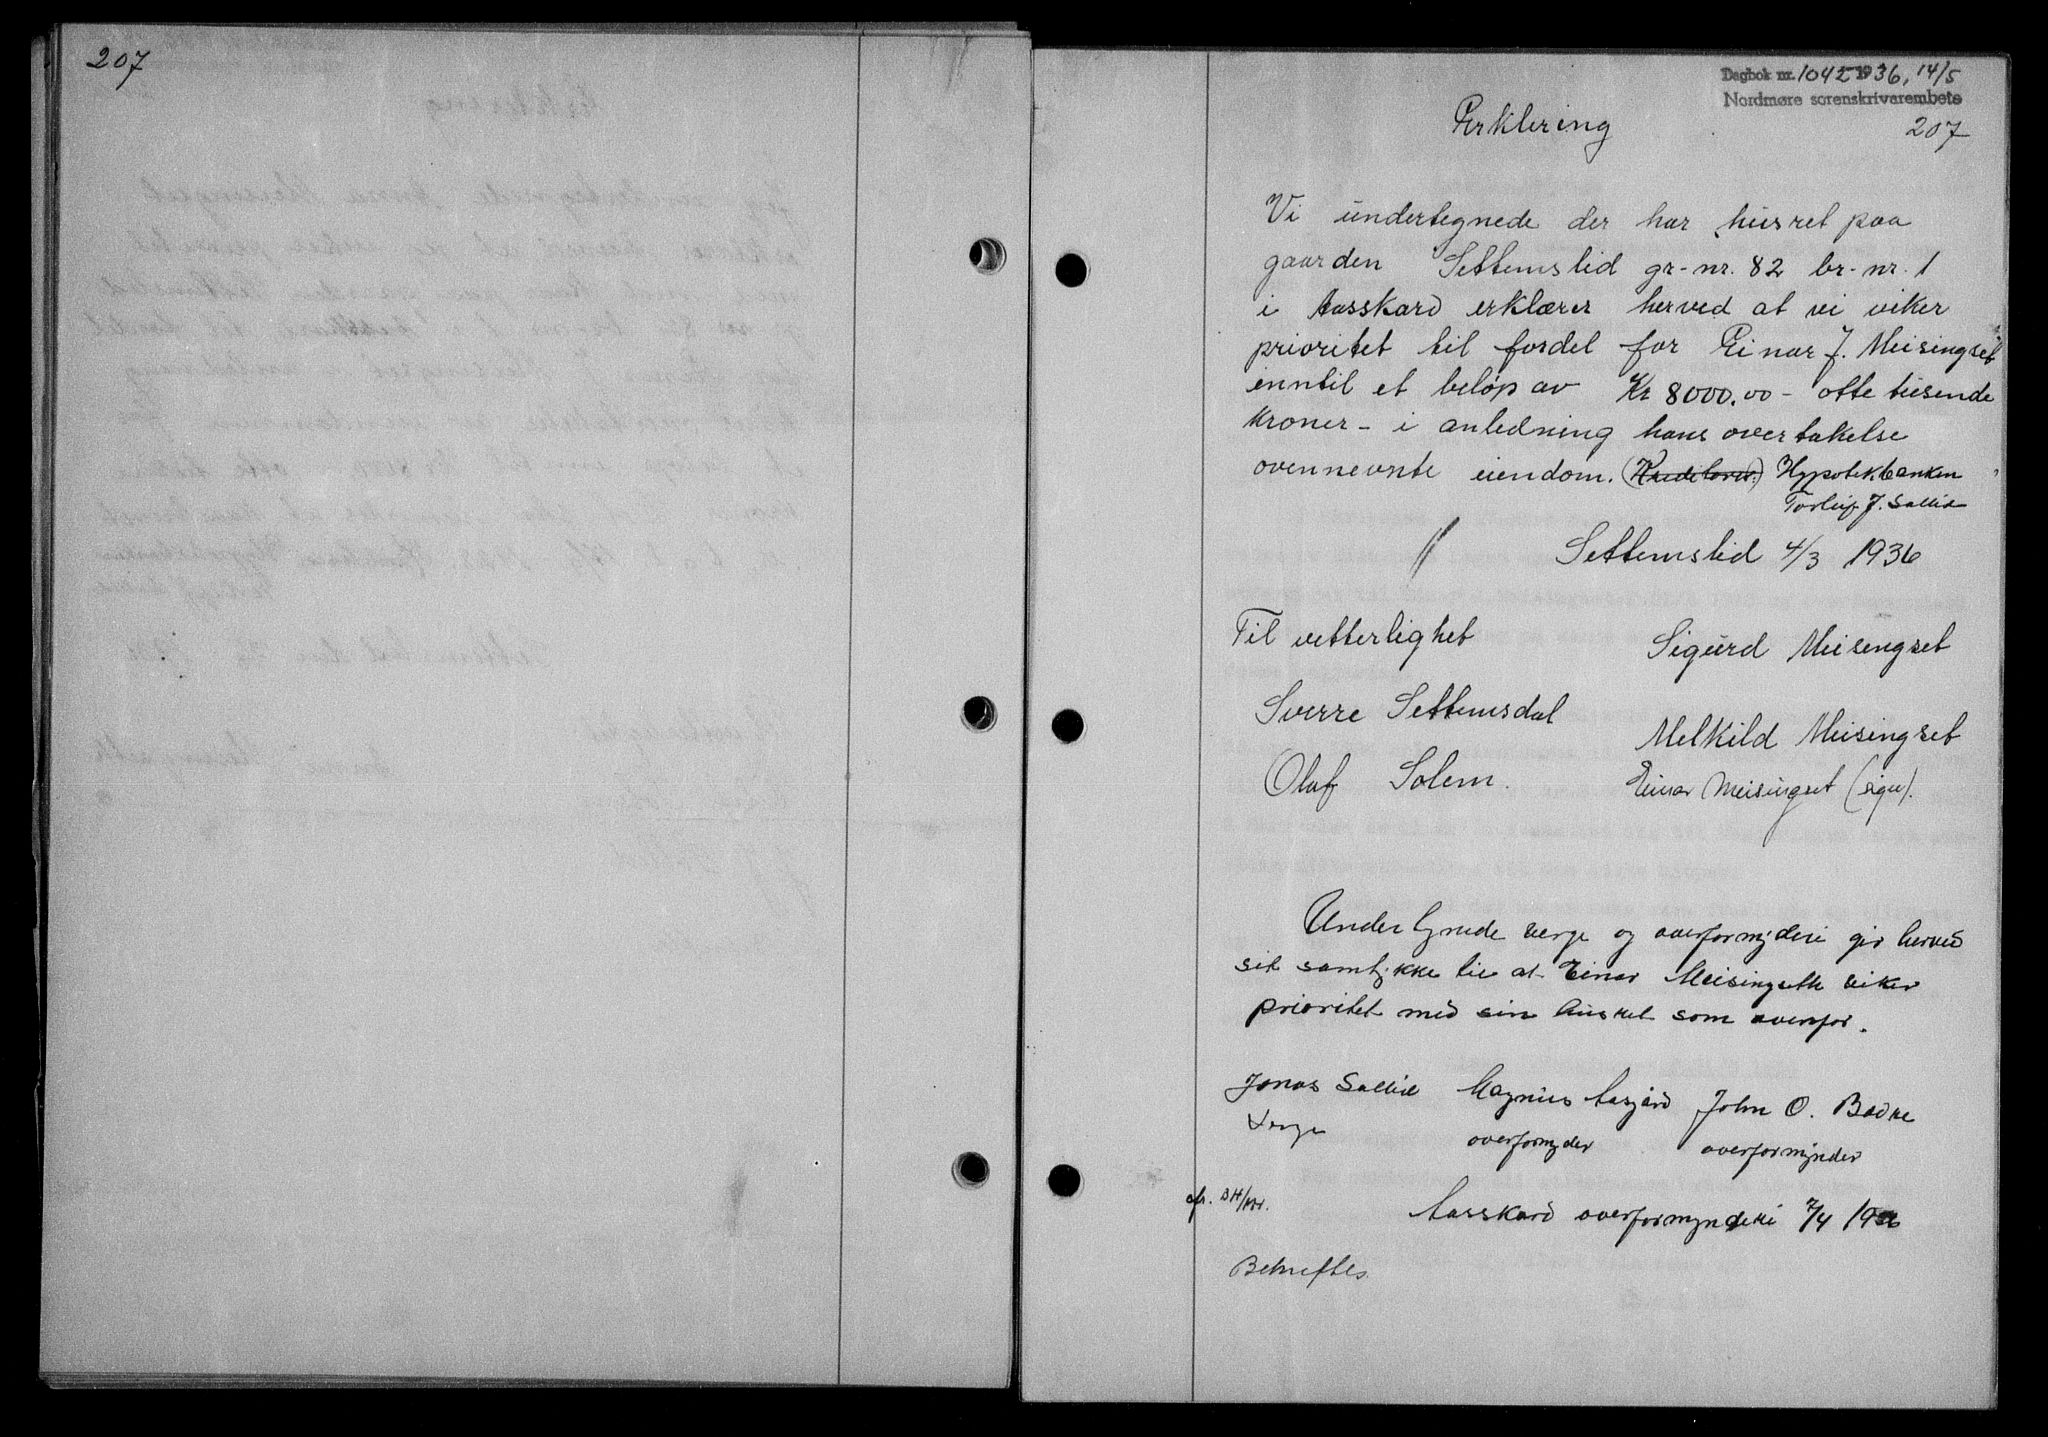 207
Dagbok nr. 1042 1936, 14/5
Nordmøre sorenskriverembete
207
Erklering
Vi undertegnede der har husret paa
gaarden Settemslid gr-nr. 82 br-nr. 1
i Aasskard erklærer herved at vi viker
prioritet til fordel for Einar J. Meisingset
inntil et beløp av Kr 8000.00 - otte tusende
kroner - i anledning hans overtakelse
ovennevnte eiendom. (Kreditorer:) Hypotekbanken
Torleif J. Sallid
Settemslid 4/3 1936
Til vitterlighet
Sigurd Meisengset
Sverre Settemsdal
Melkild Meisingset
Olaf Solem.
Einar Meisingset (sign).
Undertegnede verge og overformynderi gir herved
sit samtykke til at Einar Meisingseth viker
prioritet med sin husret som ovenfor.
Jonas Sallid Magnus Aasgård John O. Bævre
Verge overformynder overformynder
afr. BH/
Aasskard overformynderi 7/4 1936
Bekreftes.